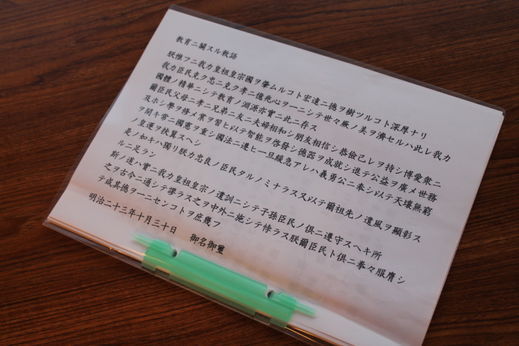 教育ニ關スル敕語
朕惟フニ我カ皇祖皇宗國ヲ肇ムルコト宏遠ニ德ヲ樹ツルコト深厚ナリ
我カ臣民克ク忠ニ克ク孝ニ億兆心ヲ一ニシテ世々厥ノ美ヲ濟セルハ此レ我カ
國體ノ精華ニシテ教育ノ淵源亦實ニ此ニ存ス
爾臣民父母ニ孝ニ兄弟ニ友ニ夫婦相和シ朋友相信シ恭儉己レヲ持シ博愛衆ニ
及ホシ學ヲ修メ業ヲ習ヒ以テ智能ヲ啓發シ德器ヲ成就シ進テ公益ヲ廣メ世務
ヲ開キ常ニ國憲ヲ重シ國法ニ遵ヒ一旦緩急アレハ義勇公ニ奉シ以テ天壤無窮
ノ皇運ヲ扶翼スヘシ
是ノ如キハ獨リ朕カ忠良ノ臣民タルノミナラス又以テ爾祖先ノ遺風ヲ顯彰ス
ルニ足ラン
斯ノ道ハ實ニ我カ皇祖皇宗ノ遺訓ニシテ子孫臣民ノ俱ニ遵守スヘキ所
之ヲ古今ニ通シテ謬ラス之ヲ中外ニ施シテ悖ラス朕爾臣民ト俱ニ拳々服膺シ
テ咸其德ヲ一ニセンコトヲ庶幾フ
明治二十三年十月三十日
御名御璽